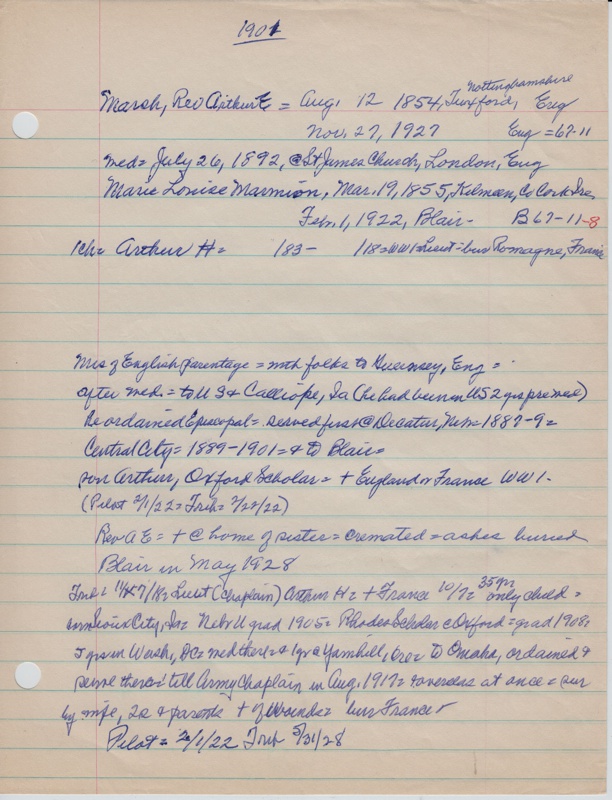 1901
Marsh, Rev Arthur E = Aug. 12 1854, Tuxford, Nottinghamshire Eng
Nov. 27, 1927 Eng = 67-11
med= July 26, 1892, @ St James Church, London, Eng
Marie Louise Marmion, Mar. 19, 1855, Co Cork Ire
Feb. 1, 1922, Blair- B67-11-8
1ch= Arthur H= 183- /18=WW1=Lieut=bur Romagne, France
Mrs of English parentage = with folks to Guernsey, Eng =
after med.= to US & Calliope, Ia (he had been in US 2 yrs pre med)
Re ordained Episcopal= served first @ Decatur, Neb= 1887-9=
Central City= 1889-1901= & to Blair=
son Arthur, Oxford Scholar= + England or France WW1-
(Pilot 2/1/22= Trib= 2/22/22)
Rev A E= + @ home of sister= cremated= ashes buried
Blair in May 1928
Trib= Lieut (Chaplain) Arthur H= + France 10/ 35 yr only child=
born Sioux City, Ia= Nebr U grad 1905= Rhodes Scholar @ Oxford= grad 1908=
yrs in Wash, DC= med there= & 1 yr @ Yamhill, Ore= to Omaha, ordained &
serve there= till Army Chaplain in Aug. 1917= overseas at once= sur
by wife, 2s & parents + of Wounds= bur France-
Pilot= 2/1/22 Trib 5/31/28